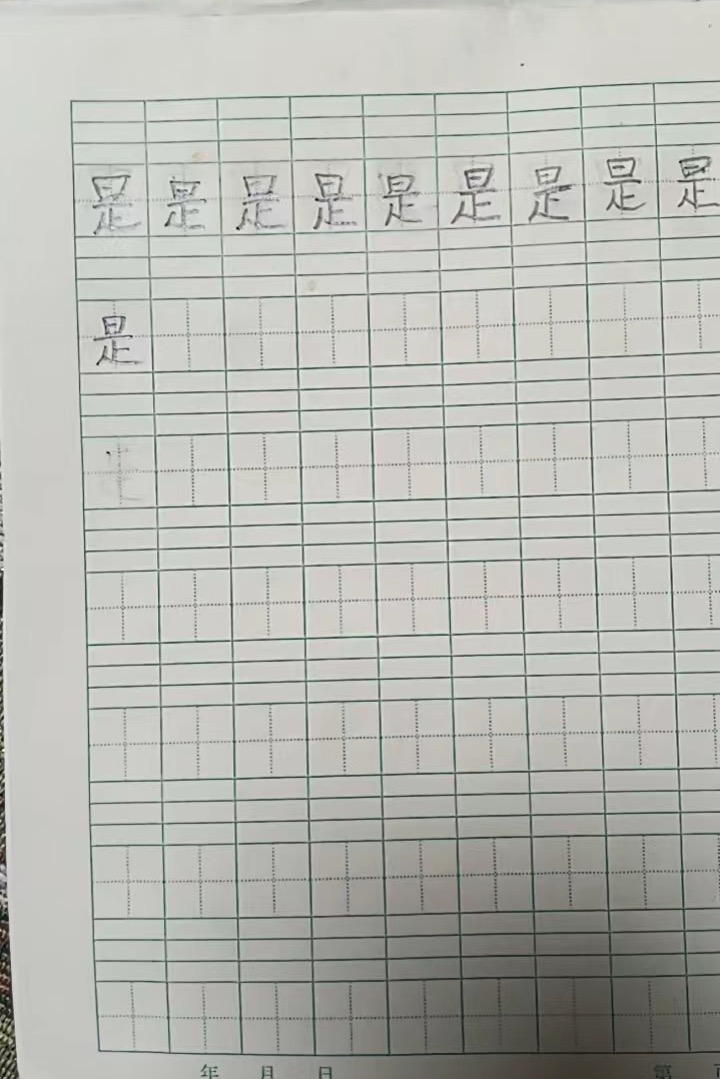 是是是是是是是是是
是
年 月 日 第